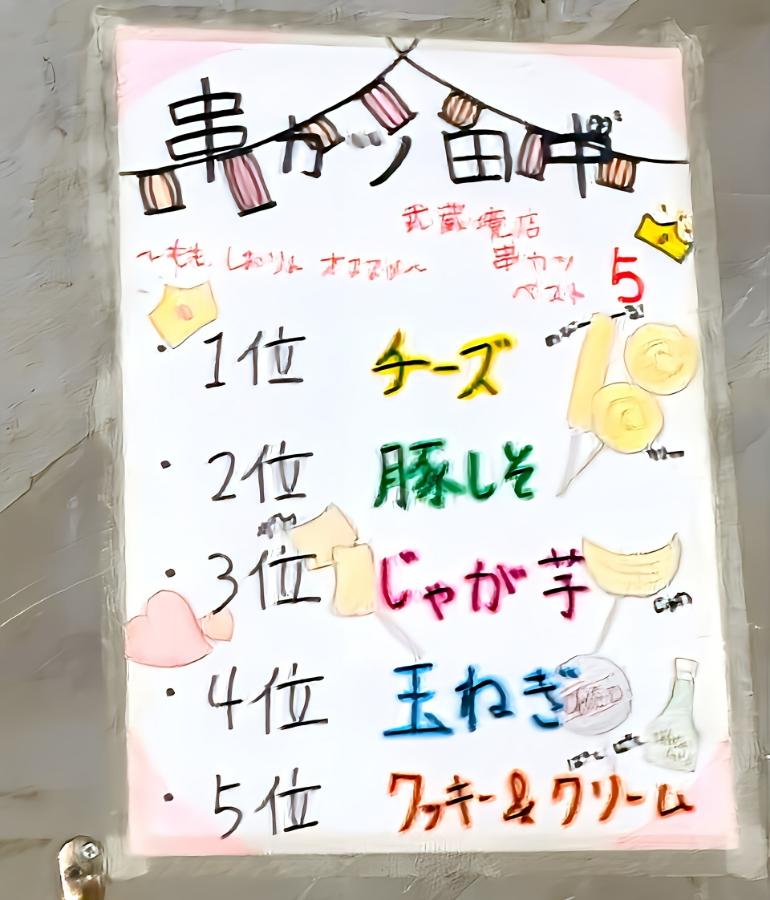 串カツ田中
武蔵境店
〜もも しおりん オススメ〜 串カツ
ベスト5
・1位 チーズ
・2位 豚しそ
・3位 じゃが芋
・4位 玉ねぎ
・5位 クッキー&クリーム